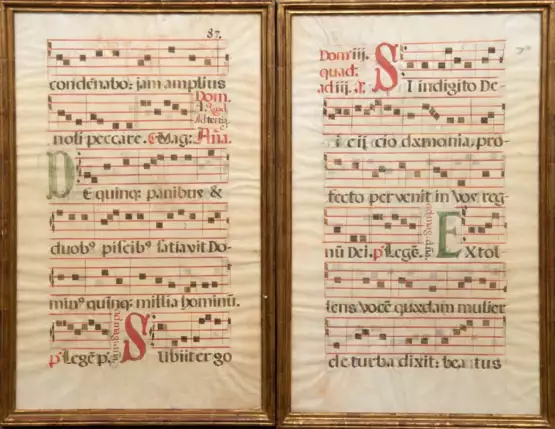 87.
condẽnabo: jam amplius
Dom.
noli peccare. Mag: Aña.
DE quinq: panibus &
duobꝰ piscibꝰ satiavit Do-
minꝰ quinq: millia hominũ.
SUbiit ergo
Dom. iij.
quad:
ad iij.
SI in digito De-
i eij cio dæmonia, pro-
fecto pervenit in vos reg-
nũ Dei. p. Legẽ.
EXtol
lens vocẽ quædam mulier
de turba dixit: beatus